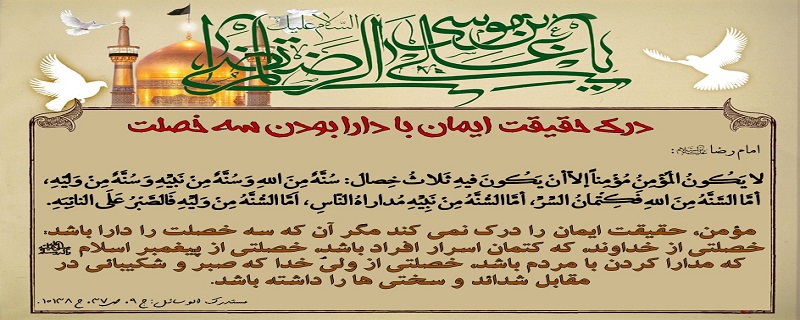 السلام علیک
یا علی بن موسی الرضا المرتضی
درک حقیقت ایمان با دارا بودن سه خصلت
امام رضا علیه‌السلام:
لا یَکُونُ الْمُؤْمِنُ مُؤْمِناً إلاّ أنْ یَکُونَ فیهِ ثَلاثُ خِصال: سُنَّهٌ مِنَ اللهِ وَ سُنَّهٌ مِنْ نَبِیِّهِ وَ سُنَّهٌ مِنْ وَلیّهِ،
أمَّا السَّنَّهُ مِنَ اللهِ فَکِتْمانُ السِّرِّ، أمَّا السُّنَّهُ مِنْ نَبِیِّهِ مُداراهُ النّاسِ، أمَّا السُّنَّهُ مِنْ وَلیِّهِ فَالصَّبْرُ عَلَی النائِبَهِ.
مؤمن، حقیقت ایمان را درک نمی کند مگر آن که سه خصلت را دارا باشد:
خصلتی از خداوند، که کتمان اسرار افراد باشد، خصلتی از پیغمبر اسلام
که مدارا کردن با مردم باشد، خصلتی از ولیّ خدا که صبر و شکیبائی در
مقابل شدائد و سختی ها را داشته باشد.
مستدرک الوسائل: ج ۹، ص ۳۷، ح ۱۰۱۳۸.